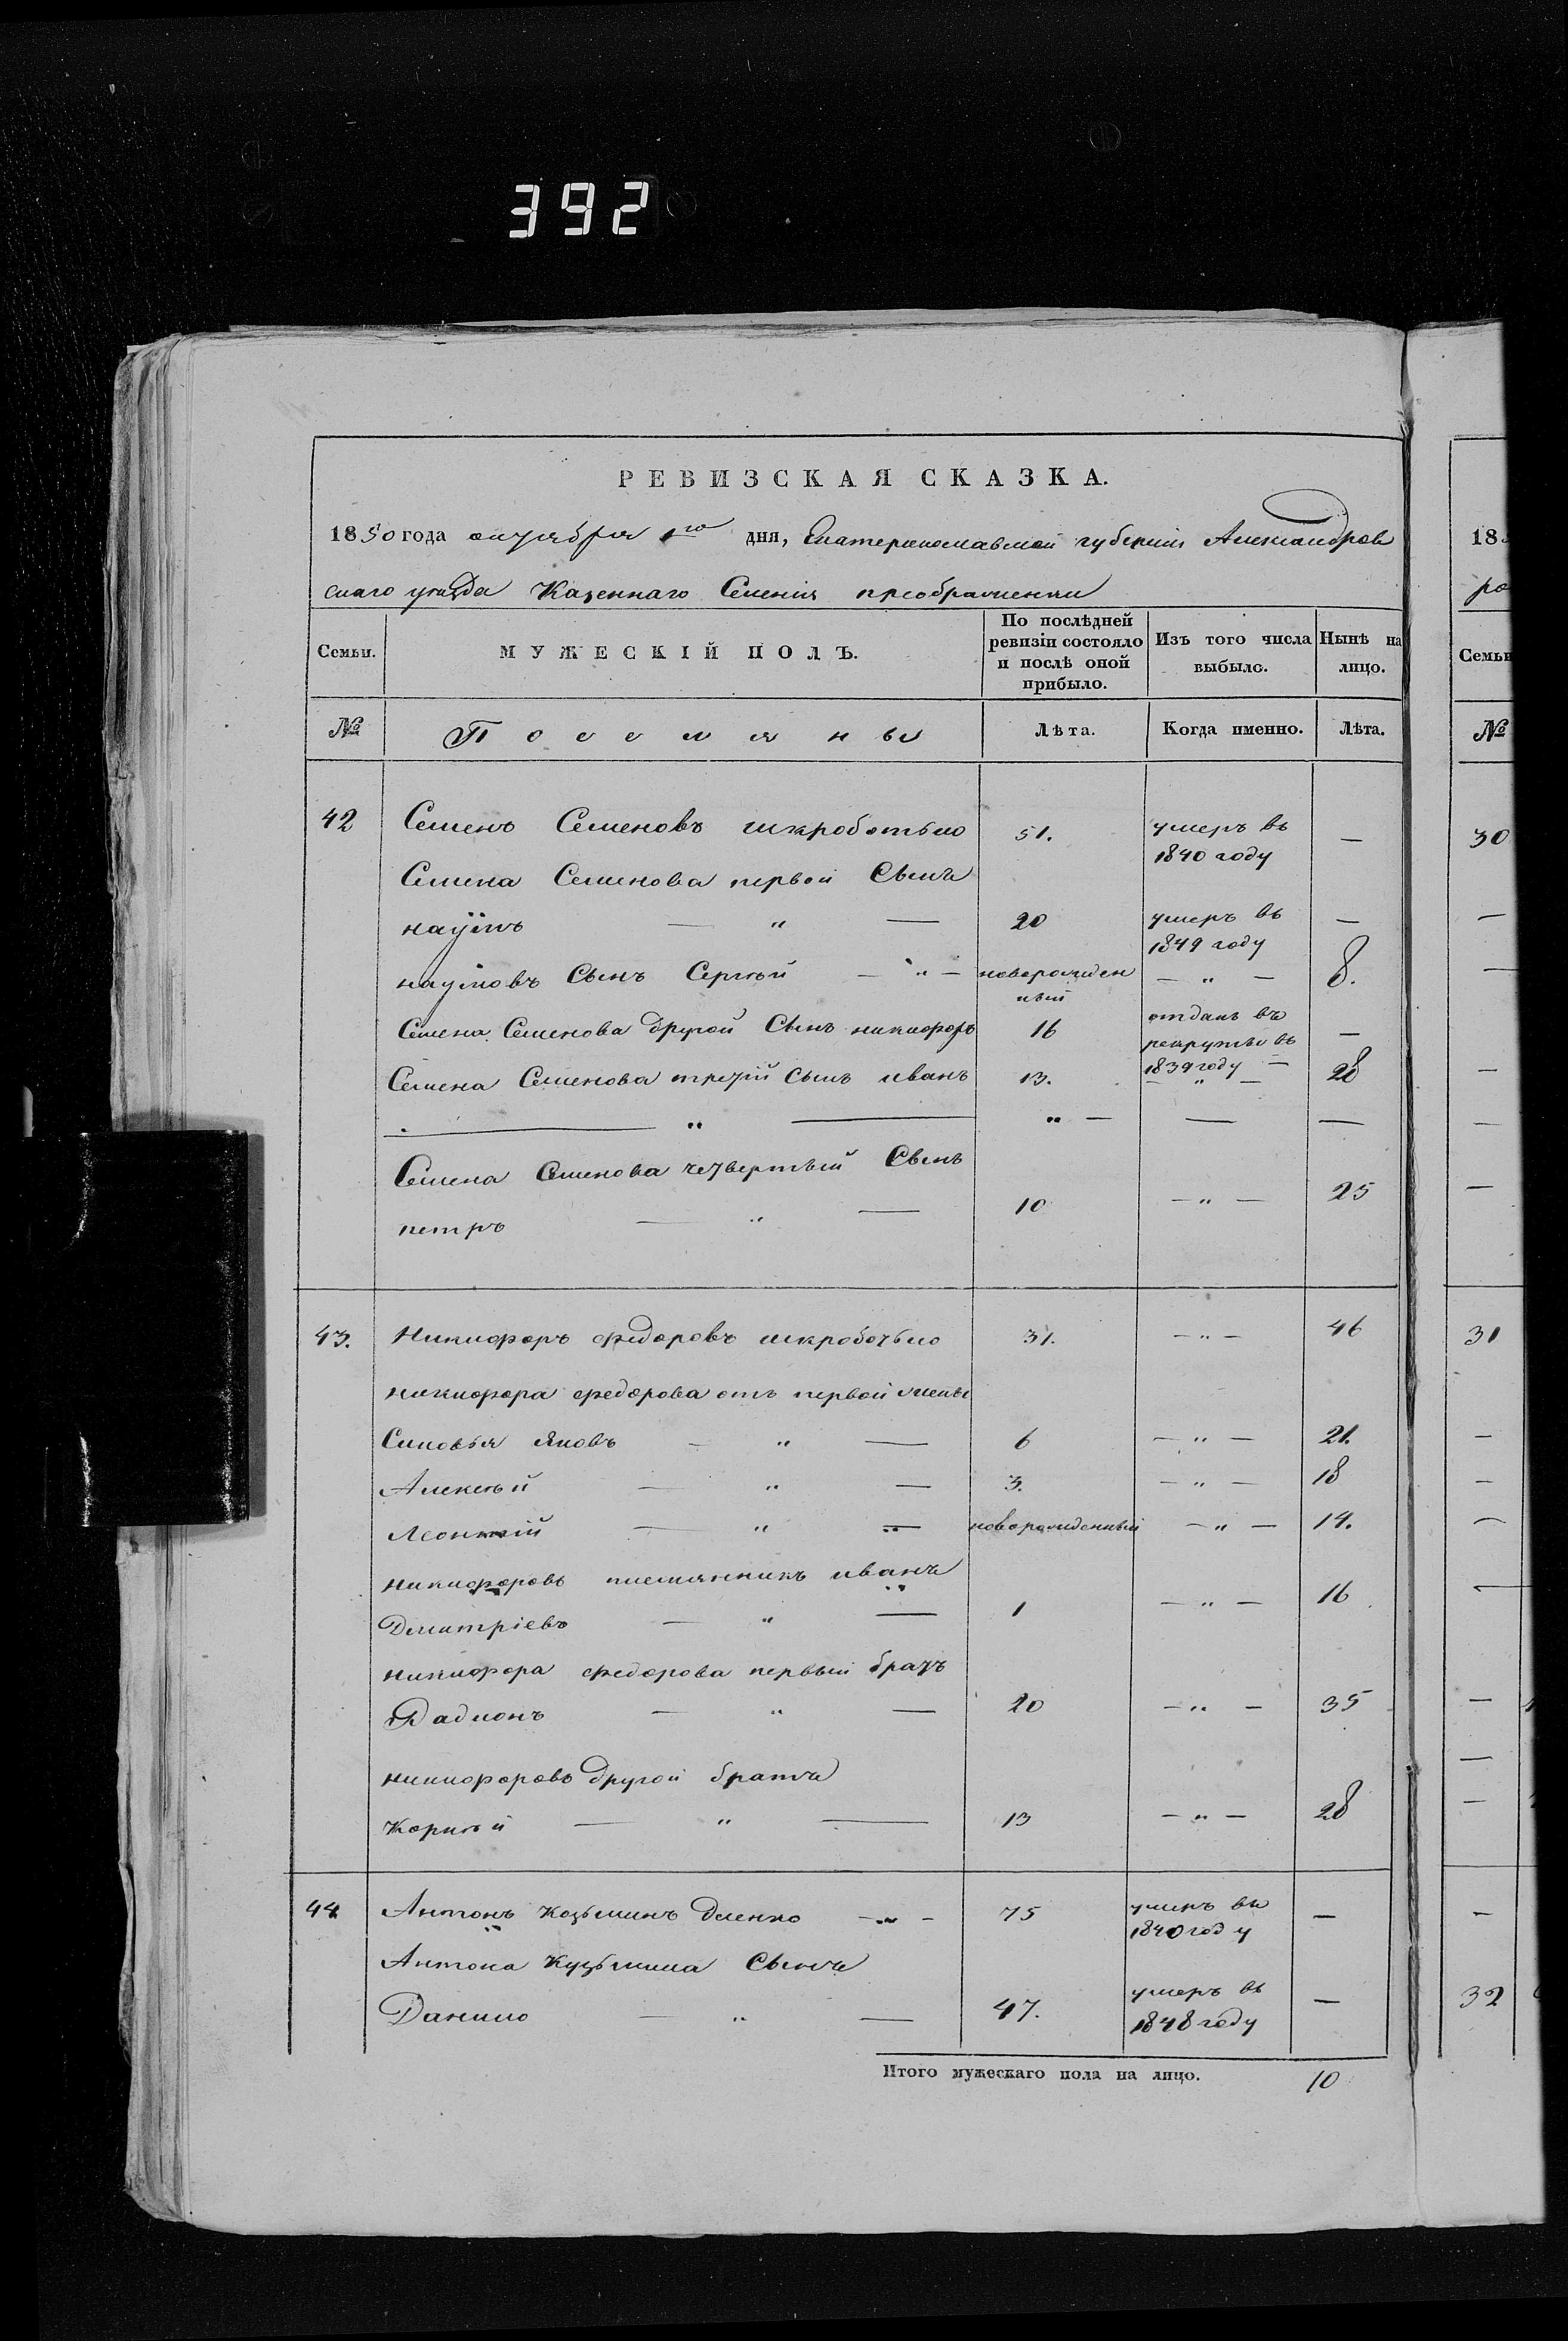 392
РЕВИЗСКАЯ СКАЗКА.
1850 года октября 1го дня, Екатеринославской губерніи Александров
скаго уѣзда Казеннаго Селенія преображенки
Семьи. МУЖЕСКІЙ ПОЛЪ. По послѣдней ревизіи состояло и послѣ оной прибыло. Изъ того числа выбыло. Нынѣ на лицо.
№ Поселяны Лѣта. Когда именно. Лѣта.
42 Семенъ Семеновъ шкроботько 51. умеръ въ 1840 году —
Семена Семенова первой Сынъ
наумъ — " — 20 умеръ въ 1849 году —
наумовъ Сынъ Сергѣй — " — новорожденный — " — 8.
Семена Семенова другой Сынъ никифоръ 16 отданъ въ рекруты въ 1839 году —
Семена Семенова третій Сынъ иванъ 13. — " — 28
— " — " — — —
Семена Семенова четвертый Сынъ
петръ — " — 10 — " — 25
43. Никифоръ федоровъ шкроботько 31. — " — 46
никифора федорова отъ первой жены
Синовья Яковъ — " — 6 — " — 21.
Алексѣй — " — 3. — " — 18
Леонтій — " — новорожденный — " — 14.
никифоровъ племянникъ иванъ
Дмитріевъ — " — 1 — " — 16
никифора федорова первый братъ
Радионъ — " — 20 — " — 35
никифоровъ другой братъ
Корнѣй — " — 13 — " — 28
44 Антонъ Козьминъ — " — 75 умеръ въ 1840 году —
Антона Кузьмина Сынъ
Данило — " — 47. умеръ въ 1848 году —
Итого мужескаго пола на лицо. 10
18
ро
Семьи
№
30
31
32